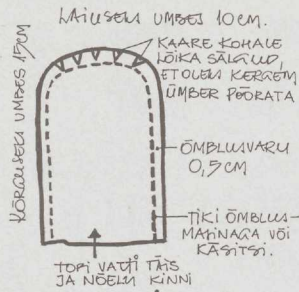 LAIUSEKS UMBES 10CM.
KÕRGUSEKS UMBES 15CM
KAARE KOHALE
LÕIKA SÄLGUD,
ET OLEKS KERGEM
ÜMBER PÖÖRATA
ÕMBLUSVARU
0,5CM
TIKI ÕMBLUS-
MASINAGA VÕI
KÄSITSI.
TOPI VATTI TÄIS
JA NÕELU KINNI